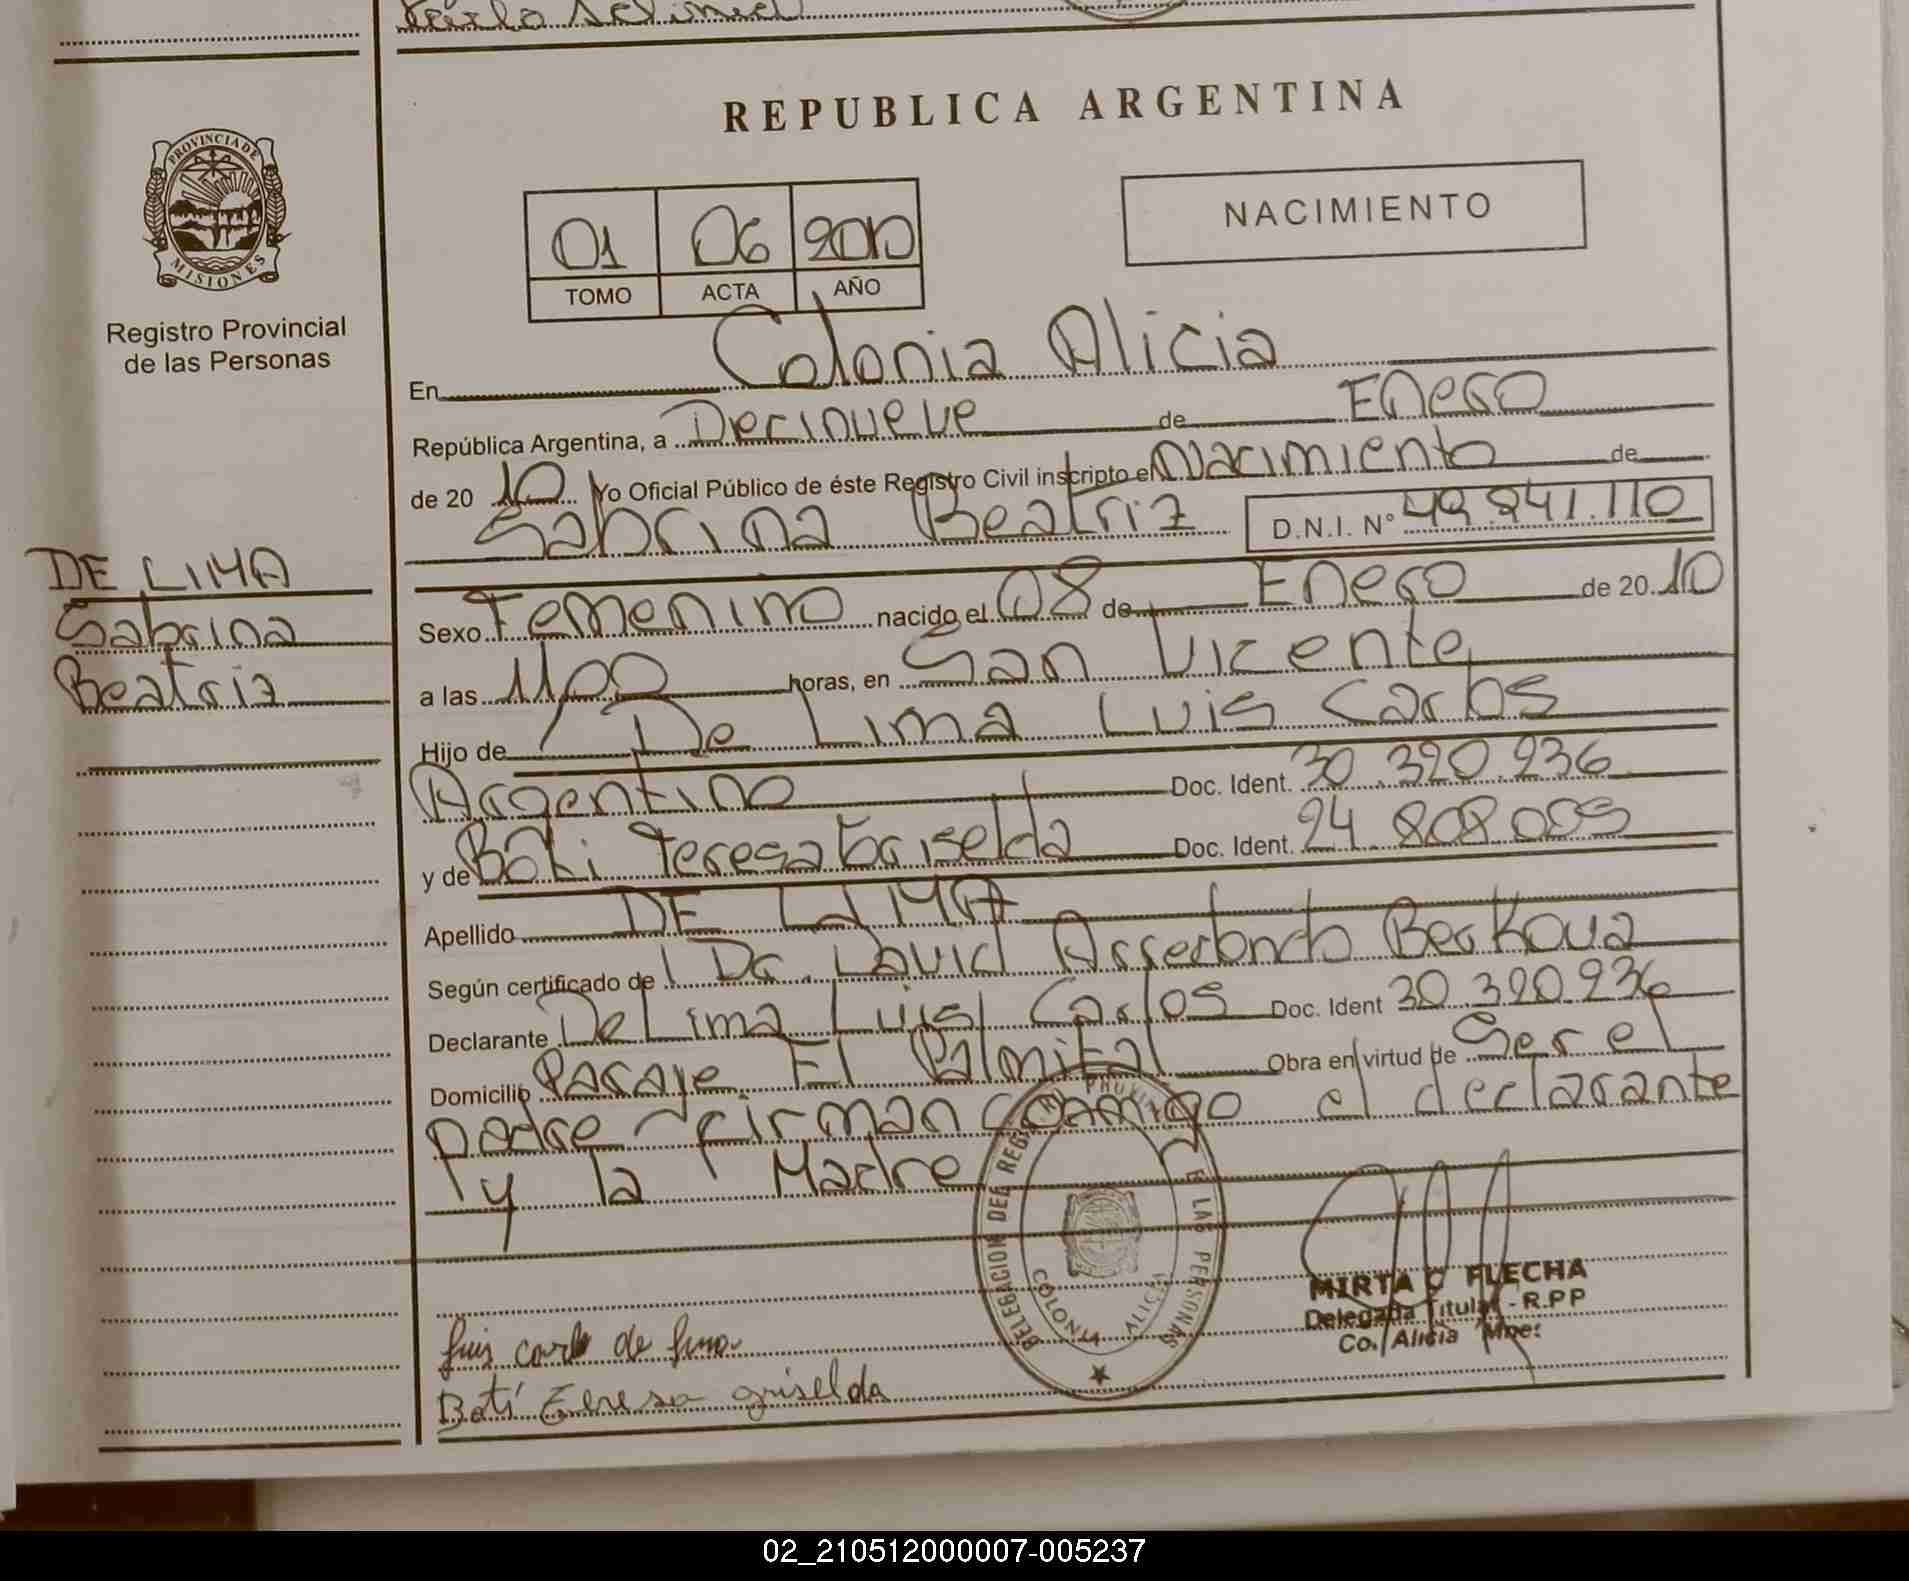 REPUBLICA ARGENTINA
PROVINCIA DE
MISIONES
Registro Provincial
de las Personas
01 06 2010
TOMO ACTA AÑO
NACIMIENTO
En Colonia Alicia
República Argentina, a Decinueve de Enero
de 20 10 Yo Oficial Público de éste Registro Civil inscripto el Nacimiento de
Sabrina Beatriz D.N.I. Nº 49.841.110
DE LIMA
Sabrina
Beatriz
Sexo Femenino nacido el 08 de Enero de 20 10
a las 1100 horas, en San Vicente
Hijo de De Lima Luis Carlos
Argentino Doc. Ident. 30.320.236
y de Boti Teresa Griselda Doc. Ident. 24.808.009
Apellido DE LIMA
Según certificado de Dr. David Arredondo Berkova
Declarante De Lima Luis Carlos Doc. Ident 30.320.236
Domicilio Paraje El Palmital Obra en virtud de Ser el
padre firman conmigo el declarante
y la Madre
DELEGACION DEL REG PROVIN E LAS PERSONAS
COLONIA ALICIA
MIRTA C FLECHA
Delegada Titular - R.PP
Co. Alicia Mnes
Luis Carlo de Lima
Botí Teresa griselda
02_210512000007-005237